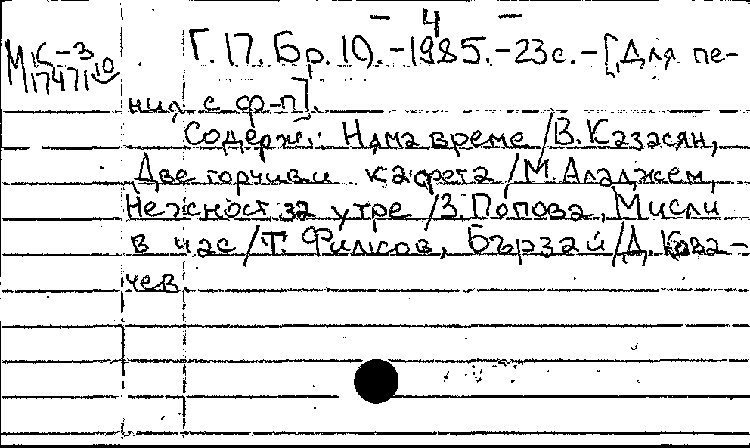 — 4 —
М К-3
17471 ю
Г. 17. Бр. 10. – 1985. – 23 с. – [Для пе-
ния с ф-п].
Содерж.: Няма време / В. Казасян,
Две горчиви кафета / М. Аладжем,
Нежност за утре / З. Попова, Мисли
в час / Т. Филков, Бързай / Д. Кова-
чев.